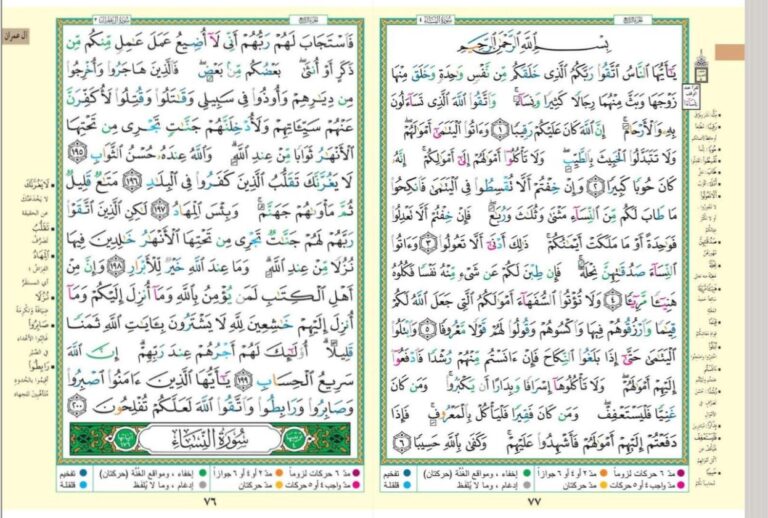 سُورَةُ آلِ عِمۡرَان ٣
الجُزءُ الرَّابِعُ
آل عمران
فَٱسۡتَجَابَ لَهُمۡ رَبُّهُمۡ أَنِّي لَآ أُضِيعُ عَمَلَ عَٰمِلٖ مِّنكُم مِّن
ذَكَرٍ أَوۡ أُنثَىٰۖ بَعۡضُكُم مِّنۢ بَعۡضٖۖ فَٱلَّذِينَ هَاجَرُواْ وَأُخۡرِجُواْ
مِن دِيَٰرِهِمۡ وَأُوذُواْ فِي سَبِيلِي وَقَٰتَلُواْ وَقُتِلُواْ لَأُكَفِّرَنَّ
عَنۡهُمۡ سَيِّـَٔاتِهِمۡ وَلَأُدۡخِلَنَّهُمۡ جَنَّٰتٖ تَجۡرِي مِن تَحۡتِهَا
ٱلۡأَنۡهَٰرُ ثَوَابٗا مِّنۡ عِندِ ٱللَّهِۚ وَٱللَّهُ عِندَهُۥ حُسۡنُ ٱلثَّوَابِ ١٩٥
لَا يَغُرَّنَّكَ تَقَلُّبُ ٱلَّذِينَ كَفَرُواْ فِي ٱلۡبِلَٰدِ ١٩٦ مَتَٰعٞ قَلِيلٞ
ثُمَّ مَأۡوَىٰهُمۡ جَهَنَّمُۖ وَبِئۡسَ ٱلۡمِهَادُ ١٩٧ لَٰكِنِ ٱلَّذِينَ ٱتَّقَوۡاْ
رَبَّهُمۡ لَهُمۡ جَنَّٰتٞ تَجۡرِي مِن تَحۡتِهَا ٱلۡأَنۡهَٰرُ خَٰلِدِينَ فِيهَا
نُزُلٗا مِّنۡ عِندِ ٱللَّهِۗ وَمَا عِندَ ٱللَّهِ خَيۡرٞ لِّلۡأَبۡرَارِ ١٩٨ وَإِنَّ مِنۡ
أَهۡلِ ٱلۡكِتَٰبِ لَمَن يُؤۡمِنُ بِٱللَّهِ وَمَآ أُنزِلَ إِلَيۡكُمۡ وَمَآ
أُنزِلَ إِلَيۡهِمۡ خَٰشِعِينَ لِلَّهِ لَا يَشۡتَرُونَ بِـَٔايَٰتِ ٱللَّهِ ثَمَنٗا
قَلِيلًاۚ أُوْلَٰٓئِكَ لَهُمۡ أَجۡرُهُمۡ عِندَ رَبِّهِمۡۗ إِنَّ ٱللَّهَ
سَرِيعُ ٱلۡحِسَابِ ١٩٩ يَٰٓأَيُّهَا ٱلَّذِينَ ءَامَنُواْ ٱصۡبِرُواْ
وَصَابِرُواْ وَرَابِطُواْ وَٱتَّقُواْ ٱللَّهَ لَعَلَّكُمۡ تُفۡلِحُونَ ٢٠٠
سُورَةُ النِّسَاءِ
لَا يَغُرَّنَّكَ
لا يخدعنّك
عن الحقيقة
تَقَلُّبُ
تصرّف
المِهَادُ
الفراش
أي المستقرّ
نُزُلًا
ضيافة وتكرمة
صَابِرُوا
غالبوا الأعداء
في الصّبر
رَابِطُوا
أقيموا بالحدود
متأهّبين للجهاد
مدّ ٦ حركات لزوماً مدّ ٢ أو ٤ أو ٦ جوازاً إخفاء، ومواقع الغُنَّة (حركتان) تفخيم
مدّ واجب ٤ أو ٥ حركات مدّ حركتان إدغام، وما لا يُلفَظ قلقلة
٧٦
سُورَةُ النِّسَاءِ ٤
الجُزءُ الرَّابِعُ
بِسۡمِ ٱللَّهِ ٱلرَّحۡمَٰنِ ٱلرَّحِيمِ
يَٰٓأَيُّهَا ٱلنَّاسُ ٱتَّقُواْ رَبَّكُمُ ٱلَّذِي خَلَقَكُم مِّن نَّفۡسٖ وَٰحِدَةٖ وَخَلَقَ مِنۡهَا
زَوۡجَهَا وَبَثَّ مِنۡهُمَا رِجَالٗا كَثِيرٗا وَنِسَآءٗۚ وَٱتَّقُواْ ٱللَّهَ ٱلَّذِي تَسَآءَلُونَ
بِهِۦ وَٱلۡأَرۡحَامَۚ إِنَّ ٱللَّهَ كَانَ عَلَيۡكُمۡ رَقِيبٗا ١ وَءَاتُواْ ٱلۡيَتَٰمَىٰٓ أَمۡوَٰلَهُمۡۖ
وَلَا تَتَبَدَّلُواْ ٱلۡخَبِيثَ بِٱلطَّيِّبِۖ وَلَا تَأۡكُلُوٓاْ أَمۡوَٰلَهُمۡ إِلَىٰٓ أَمۡوَٰلِكُمۡۚ إِنَّهُۥ
كَانَ حُوبٗا كَبِيرٗا ٢ وَإِنۡ خِفۡتُمۡ أَلَّا تُقۡسِطُواْ فِي ٱلۡيَتَٰمَىٰ فَٱنكِحُواْ
مَا طَابَ لَكُم مِّنَ ٱلنِّسَآءِ مَثۡنَىٰ وَثُلَٰثَ وَرُبَٰعَۖ فَإِنۡ خِفۡتُمۡ أَلَّا تَعۡدِلُواْ
فَوَٰحِدَةً أَوۡ مَا مَلَكَتۡ أَيۡمَٰنُكُمۡۚ ذَٰلِكَ أَدۡنَىٰٓ أَلَّا تَعُولُواْ ٣ وَءَاتُواْ
ٱلنِّسَآءَ صَدُقَٰتِهِنَّ نِحۡلَةٗۚ فَإِن طِبۡنَ لَكُمۡ عَن شَيۡءٖ مِّنۡهُ نَفۡسٗا فَكُلُوهُ
هَنِيٓـٔٗا مَّرِيٓـٔٗا ٤ وَلَا تُؤۡتُواْ ٱلسُّفَهَآءَ أَمۡوَٰلَكُمُ ٱلَّتِي جَعَلَ ٱللَّهُ لَكُمۡ
قِيَٰمٗا وَٱرۡزُقُوهُمۡ فِيهَا وَٱكۡسُوهُمۡ وَقُولُواْ لَهُمۡ قَوۡلٗا مَّعۡرُوفٗا ٥ وَٱبۡتَلُواْ
ٱلۡيَتَٰمَىٰ حَتَّىٰٓ إِذَا بَلَغُواْ ٱلنِّكَاحَ فَإِنۡ ءَانَسۡتُم مِّنۡهُمۡ رُشۡدٗا فَٱدۡفَعُوٓاْ
إِلَيۡهِمۡ أَمۡوَٰلَهُمۡۖ وَلَا تَأۡكُلُوهَآ إِسۡرَافٗا وَبِدَارًا أَن يَكۡبَرُواْۚ وَمَن كَانَ
غَنِيّٗا فَلۡيَسۡتَعۡفِفۡۖ وَمَن كَانَ فَقِيرٗا فَلۡيَأۡكُلۡ بِٱلۡمَعۡرُوفِۚ فَإِذَا
دَفَعۡتُمۡ إِلَيۡهِمۡ أَمۡوَٰلَهُمۡ فَأَشۡهِدُواْ عَلَيۡهِمۡۚ وَكَفَىٰ بِٱللَّهِ حَسِيبٗا ٦
مدّ ٦ حركات لزوماً مدّ ٢ أو ٤ أو ٦ جوازاً إخفاء، ومواقع الغُنَّة (حركتان) تفخيم
مدّ واجب ٤ أو ٥ حركات مدّ حركتان إدغام، وما لا يُلفَظ قلقلة
٧٧